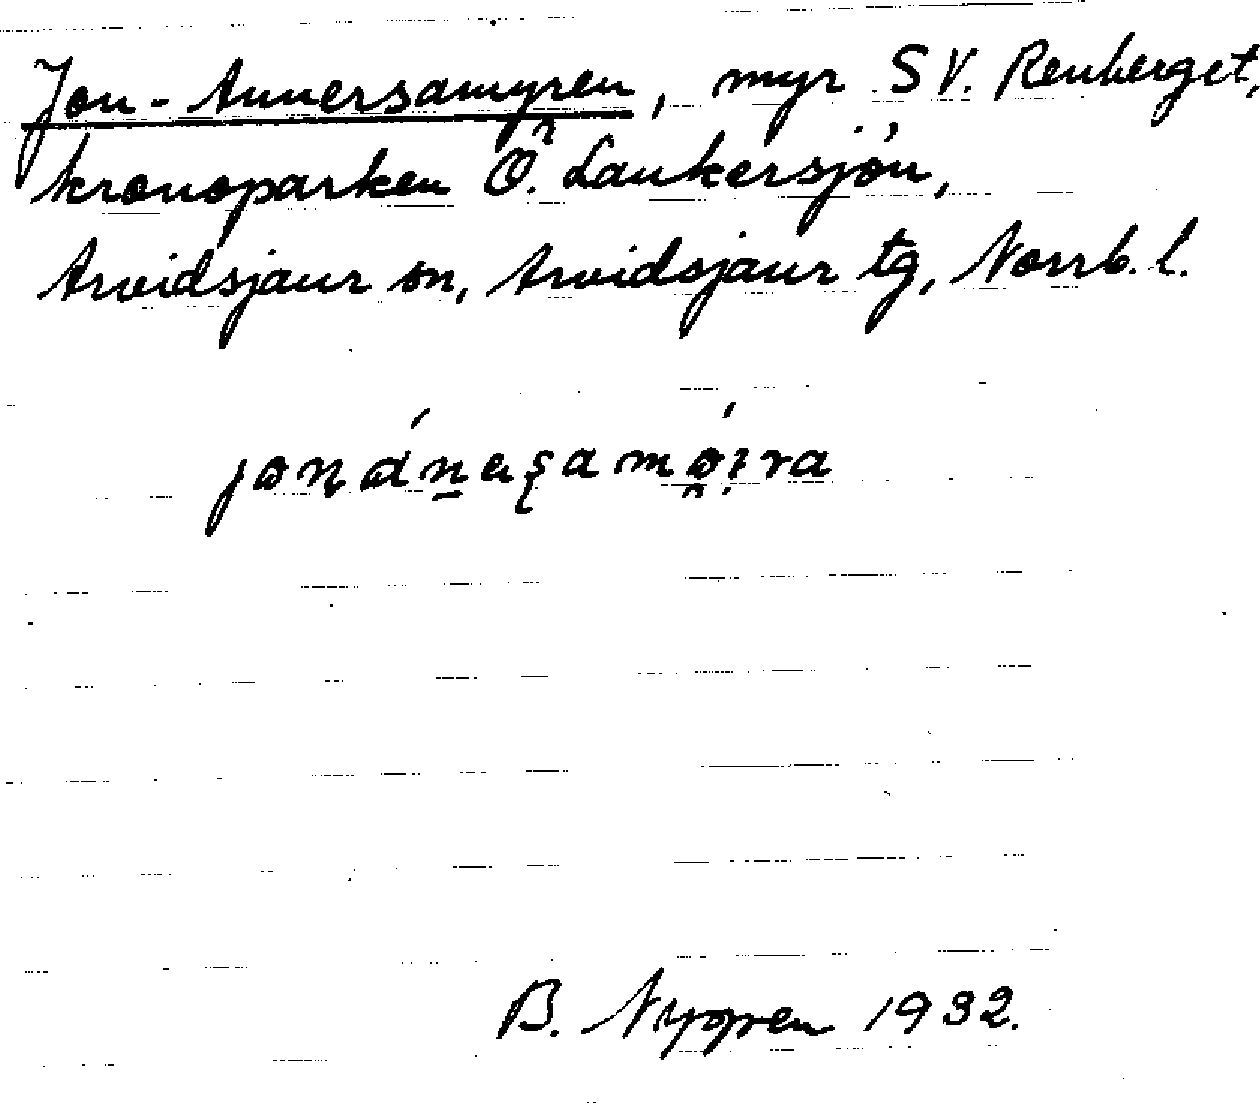 Jon-Annersamyren, myr SV. Renberget,
kronoparken Ö. Laukersjön,
Arvidsjaur sn, Arvidsjaur tg, Norrb. l.
B. Nygren 1932.